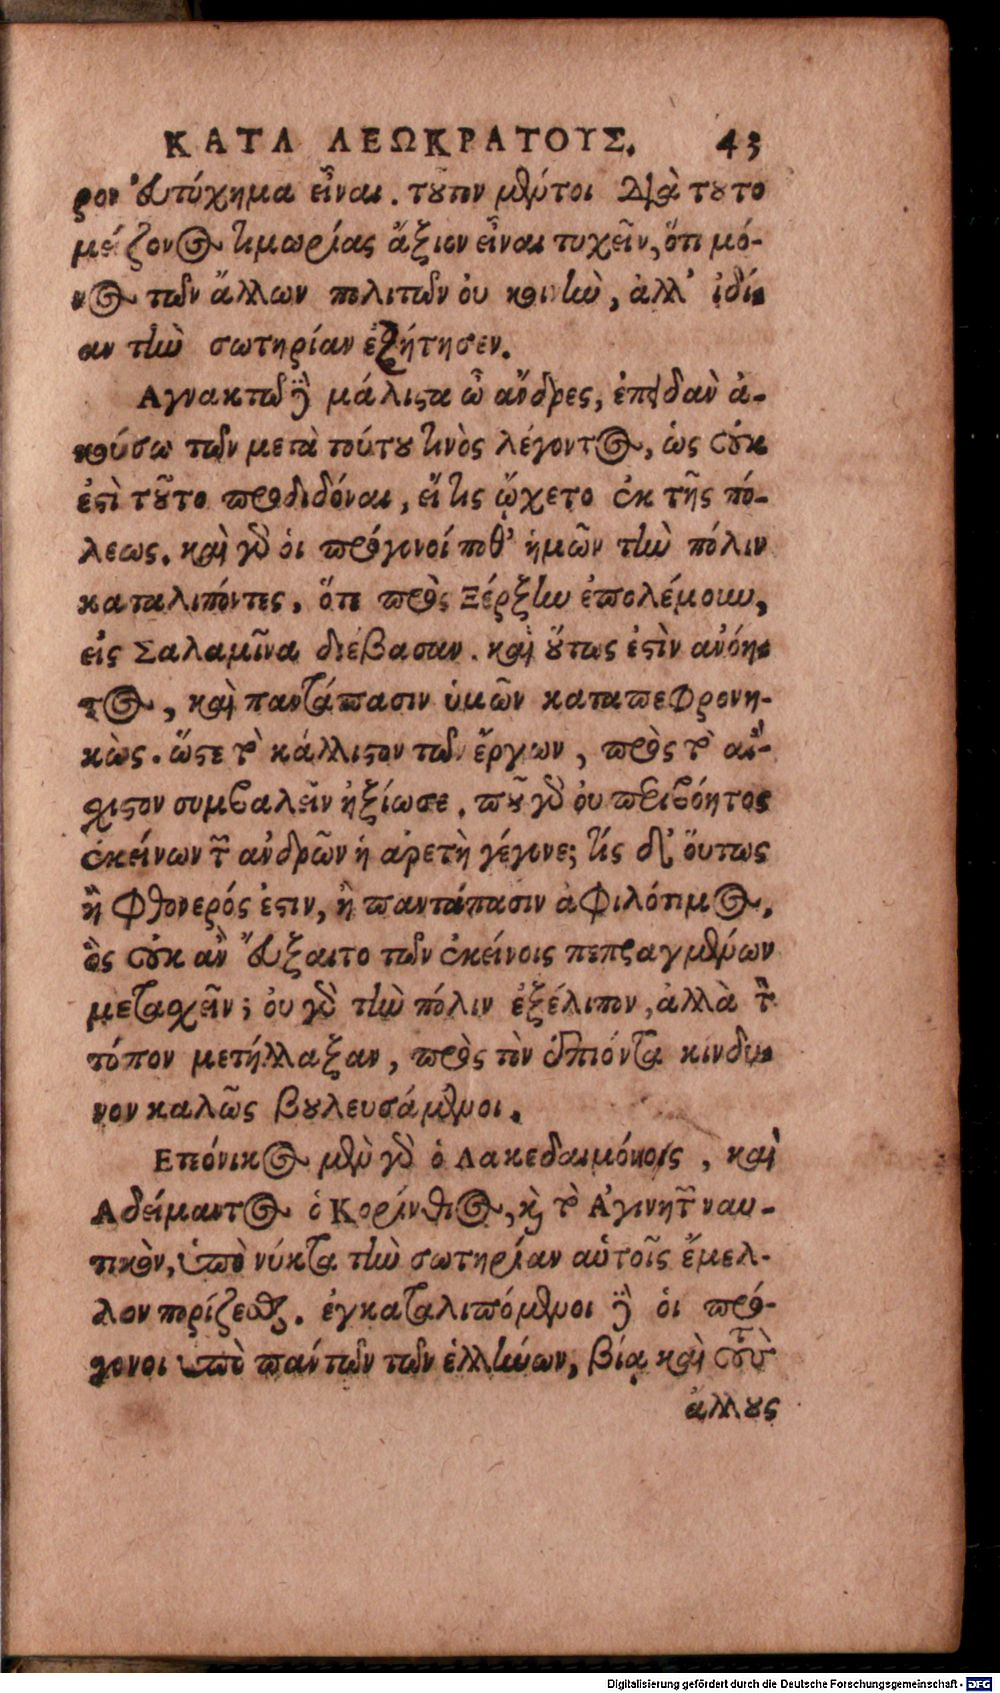 ΚΑΤΑ ΛΕΩΚΡΑΤΟΥΣ. 43
ρον εὐτύχημα εἶναι. τουτον μέντοι διὰ τουτο
μείζονος τιμωρίας ἄξιον εἶναι τυχεῖν, ὅτι μό-
νος τῶν ἄλλων πολιτῶν οὐ κοινὴν, ἀλλ' ἰδί-
αν τὴν σωτηρίαν ἐζήτησεν.
Αγνακτῶ δὲ μάλιστα ὦ ἄνδρες, ἐπειδὰν ἀ-
κούσω τῶν μετὰ τούτου τινὸς λέγοντος, ὡς οὐκ
ἐστὶ τοῦτο προδιδόναι, εἴ τις ᾤχετο ἐκ τῆς πό-
λεως. καὶ γὰρ οἱ πρόγονοί ποθ' ἡμῶν τὴν πόλιν
καταλιπόντες, ὅτε πρὸς Ξέρξην ἐπολέμουν,
εἰς Σαλαμῖνα διέβασαν. καὶ οὕτως ἐστὶν ἀνόη-
τος, καὶ παντάπασιν ὑμῶν καταπεφρονη-
κὼς. ὥστε τὸ κάλλιστον τῶν ἔργων, πρὸς τὸ αἴ-
χιστον συμβαλεῖν ἠξίωσε. ποῦ γὰρ οὐ περιβόητος
ἐκείνων τῶν ἀνδρῶν ἡ ἀρετὴ γέγονε; τίς δ' οὕτως
ἢ φθονερός ἐστιν, ἢ παντάπασιν ἀφιλότιμος,
ὃς οὐκ ἂν εὔξαιτο τῶν ἐκείνοις πεπραγμένων
μεταχεῖν; οὐ γὰρ τὴν πόλιν ἐξέλιπον, ἀλλὰ τὸν
τόπον μετήλλαξαν, πρὸς τὸν ἐπιόντα κίνδυ-
νον καλῶς βουλευσάμενοι.
Ετεόνικος μὲν γὰρ ὁ Λακεδαιμόνιος, καὶ
Αδείμαντος ὁ Κορίνθιος, καὶ τὸ Αἰγινητῶν ναυ-
τικὸν, ὑπὸ νύκτα τὴν σωτηρίαν αὑτοῖς ἔμελ-
λον πορίζεσθαι. ἐγκαταλιπόμενοι δὲ οἱ πρό-
γονοι ὑπὸ πάντων τῶν ἑλλήνων, βίᾳ καὶ τοὺς
ἄλλους
Digitalisierung gefördert durch die Deutsche Forschungsgemeinschaft - DFG